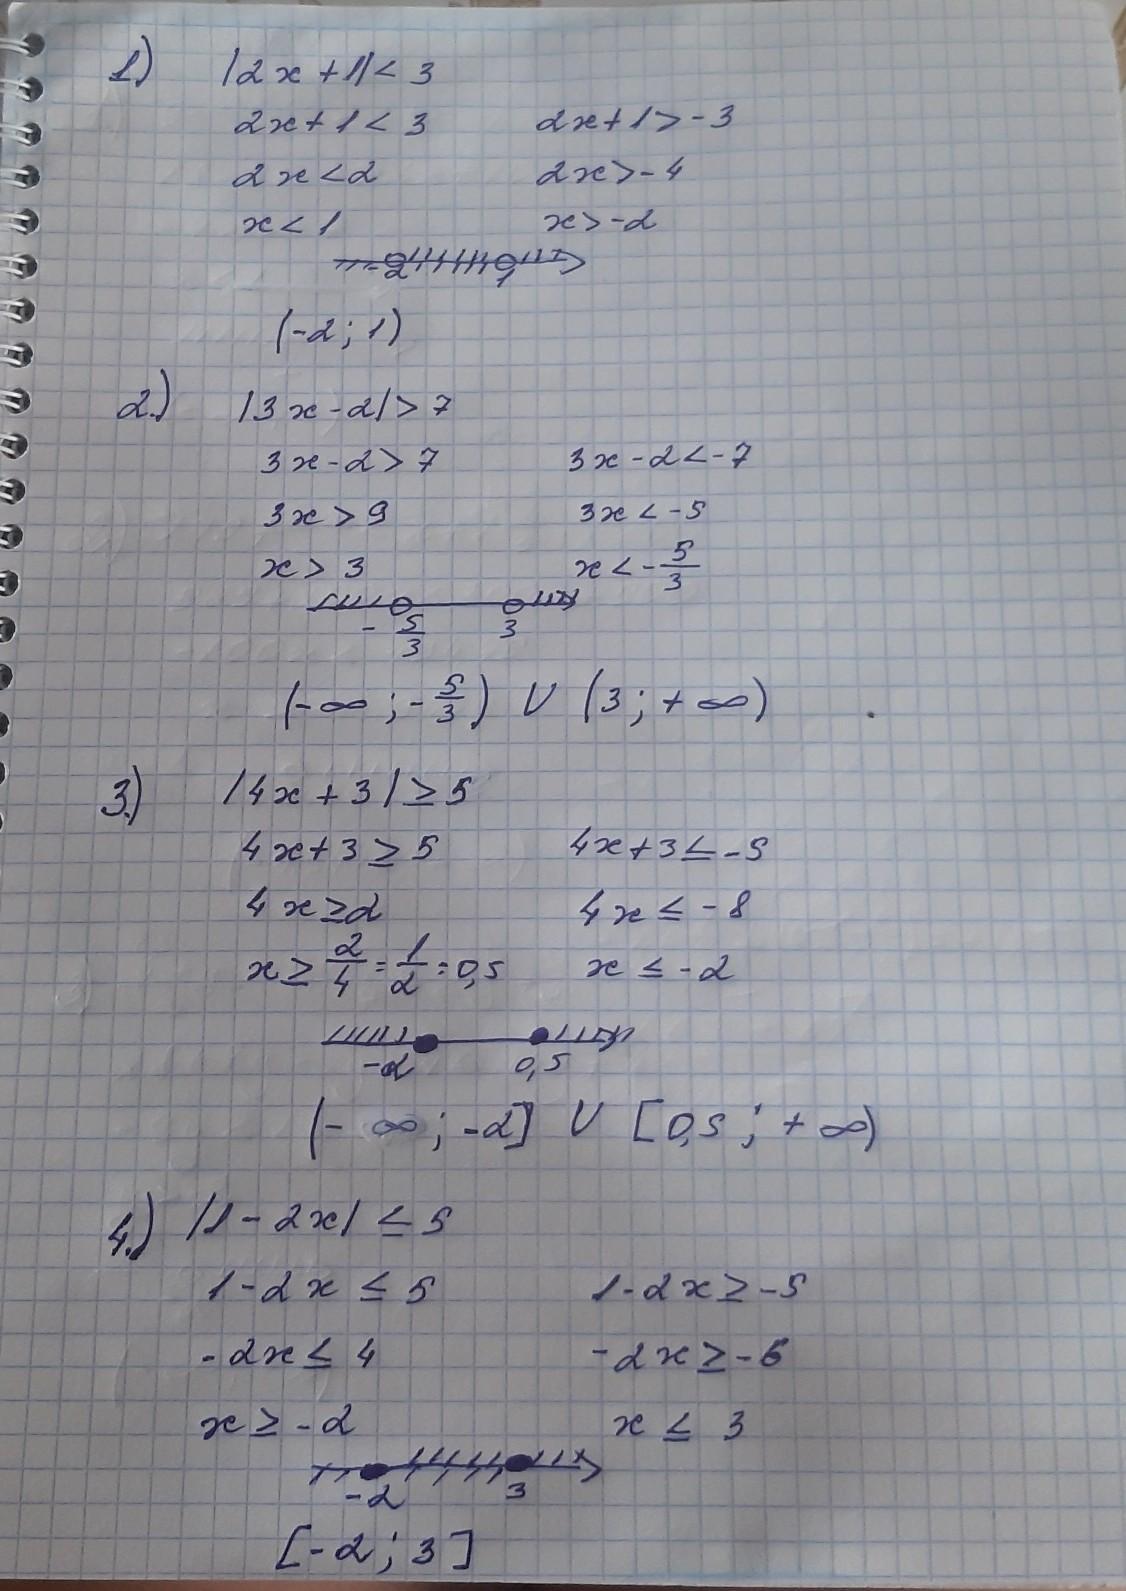 1) |2x+1|< 3
2x+1 < 3 2x+1>-3
2x<2 2x>-4
x<1 x>-2
-2 1
(-2; 1)
2.) |3x-2|> 7
3x-2> 7 3x-2<-7
3x > 9 3x < -5
x > 3 x < -5/3
-5/3 3
(-∞; -5/3) ∪ (3; +∞)
3.) |4x+3| ≥ 5
4x+3 ≥ 5 4x+3 ≤ -5
4x ≥ 2 4x ≤ -8
x ≥ 2/4 = 1/2 = 0,5 x ≤ -2
-2 0,5
(-∞; -2] ∪ [0,5; +∞)
4.) |1-2x| ≤ 5
1-2x ≤ 5 1-2x ≥ -5
-2x ≤ 4 -2x ≥ -6
x ≥ -2 x ≤ 3
-2 3
[-2; 3]